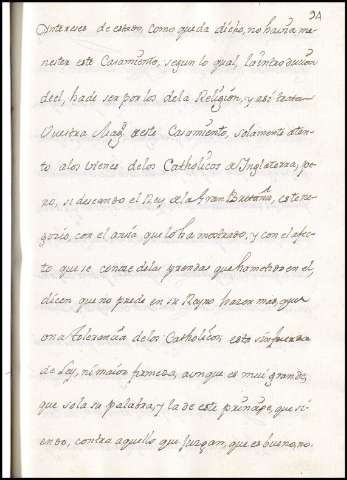 34
Intereses de estado, como queda dicho, no havia me-
nester este Casamiento, segun lo qual, la introduccion
deel, hade ser por los dela Religion, y asi trata
Vuestra Mag.d deste Casamiento, solamente aten-
to alos vienes delos Catholicos de Inglaterra, pe-
ro, si deseando el Rey dela Gran Bretaña, este ne-
gocio, con el ansia que lo ha mostrado, y con el afec-
to que se conoce delas prendas que ha metido en el,
dicen que no puede en su Reyno hazer mas, que
una tolerancia delos Catholicos, esto sin fuerza
de Ley, ni maior firmeza, aunque es mui grande,
que sola su palabra, y la de este principe, que si-
endo, contra aquello que juzgan, que es bueno, no